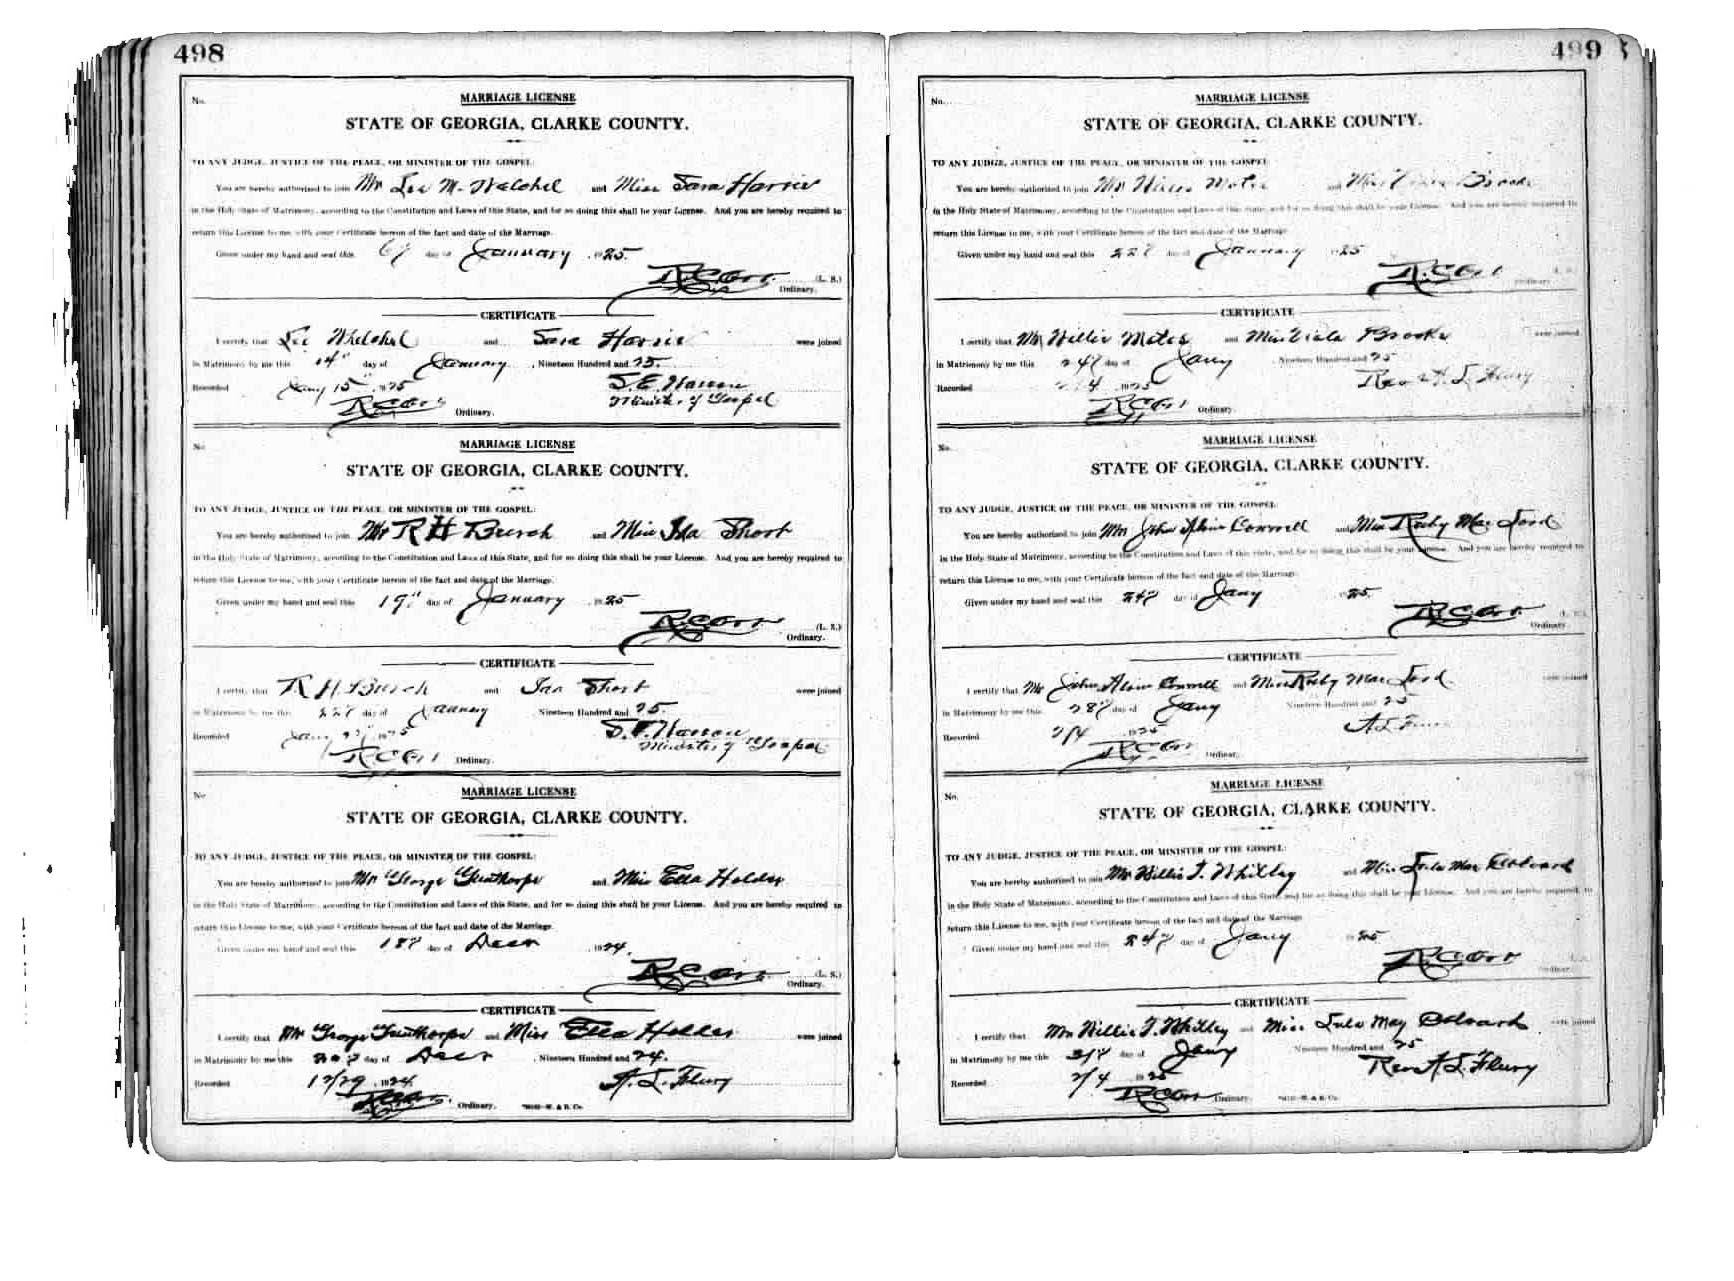 498
No.
MARRIAGE LICENSE
STATE OF GEORGIA, CLARKE COUNTY.
TO ANY JUDGE, JUSTICE OF THE PEACE, OR MINISTER OF THE GOSPEL:
You are hereby authorized to join Mr Lee M. Welchel and Miss Sara Harris
in the Holy State of Matrimony, according to the Constitution and Laws of this State, and for so doing this shall be your License. And you are hereby required to
return this License to me, with your Certificate hereon of the fact and date of the Marriage.
Given under my hand and seal this day of January 1925.
R.C. Orr (L. S.)
Ordinary.
CERTIFICATE
I certify that Lee Whelchel and Sara Harris were joined
in Matrimony by me this 14" day of January, Nineteen Hundred and 25.
Recorded Jany 15" 1925
Minister of Gospel
R.C. Orr Ordinary.
No.
MARRIAGE LICENSE
STATE OF GEORGIA, CLARKE COUNTY.
TO ANY JUDGE, JUSTICE OF THE PEACE, OR MINISTER OF THE GOSPEL:
You are hereby authorized to join Mr R H Burch and Miss Ida Short
in the Holy State of Matrimony, according to the Constitution and Laws of this State, and for so doing this shall be your License. And you are hereby required to
return this License to me, with your Certificate hereon of the fact and date of the Marriage.
Given under my hand and seal this 19" day of January 1925
R.C. Orr (L. S.)
Ordinary.
CERTIFICATE
I certify that R H Burch and Short were joined
in Matrimony by me this 22" day of January, Nineteen Hundred and 25
Recorded Jany 1925
Minister of Gospel
R C Orr Ordinary.
No.
MARRIAGE LICENSE
STATE OF GEORGIA, CLARKE COUNTY.
TO ANY JUDGE, JUSTICE OF THE PEACE, OR MINISTER OF THE GOSPEL:
You are hereby authorized to join Mr George and Miss Ella Holder
in the Holy State of Matrimony, according to the Constitution and Laws of this State, and for so doing this shall be your License. And you are hereby required to
return this License to me, with your Certificate hereon of the fact and date of the Marriage.
Given under my hand and seal this 18" day of Decr 1924.
R.C. Orr (L. S.)
Ordinary.
CERTIFICATE
I certify that Mr George and Miss Ella Holder were joined
in Matrimony by me this day of Decr, Nineteen Hundred and 24.
Recorded 12/29 1924 A. L. Flury
Ordinary.
499
No.
MARRIAGE LICENSE
STATE OF GEORGIA, CLARKE COUNTY.
TO ANY JUDGE, JUSTICE OF THE PEACE, OR MINISTER OF THE GOSPEL:
You are hereby authorized to join Mr and Miss Brooks
in the Holy State of Matrimony, according to the Constitution and Laws of this State, and for so doing this shall be your License. And you are hereby required to
return this License to me, with your Certificate hereon of the fact and date of the Marriage.
Given under my hand and seal this 22" day of January 1925
R.C. Orr (L. S.)
Ordinary.
CERTIFICATE
I certify that Mr Willie and Miss Brooks were joined
in Matrimony by me this 24" day of Jany, Nineteen Hundred and 25
Recorded 1925 Rev A L Flury
R C Orr Ordinary.
No.
MARRIAGE LICENSE
STATE OF GEORGIA, CLARKE COUNTY.
TO ANY JUDGE, JUSTICE OF THE PEACE, OR MINISTER OF THE GOSPEL:
You are hereby authorized to join Mr John Alvin Connell and Miss Ruby Mae Ford
in the Holy State of Matrimony, according to the Constitution and Laws of this State, and for so doing this shall be your License. And you are hereby required to
return this License to me, with your Certificate hereon of the fact and date of the Marriage.
Given under my hand and seal this 24" day of Jany 1925.
R.C. Orr (L. S.)
Ordinary.
CERTIFICATE
I certify that Mr John Alvin Connell and Miss Ruby Mae Ford were joined
in Matrimony by me this 28" day of Jany Nineteen Hundred and 25
Recorded 2/4 1925 A L
R C Orr Ordinary.
No.
MARRIAGE LICENSE
STATE OF GEORGIA, CLARKE COUNTY.
TO ANY JUDGE, JUSTICE OF THE PEACE, OR MINISTER OF THE GOSPEL:
You are hereby authorized to join Mr Willie T. Whitley and Miss Lula Mae Edwards
in the Holy State of Matrimony, according to the Constitution and Laws of this State, and for so doing this shall be your License. And you are hereby required, to
return this License to me, with your Certificate hereon of the fact and date of the Marriage
Given under my hand and seal this 24" day of Jany 1925
R.C. Orr
Ordinary.
CERTIFICATE
I certify that Mr Willie T. Whitley and Miss Lula May Edwards were joined
in Matrimony by me this day of Jany Nineteen Hundred and 25
Recorded 2/4 1925 Rev A. L. Flury
R C Orr Ordinary.